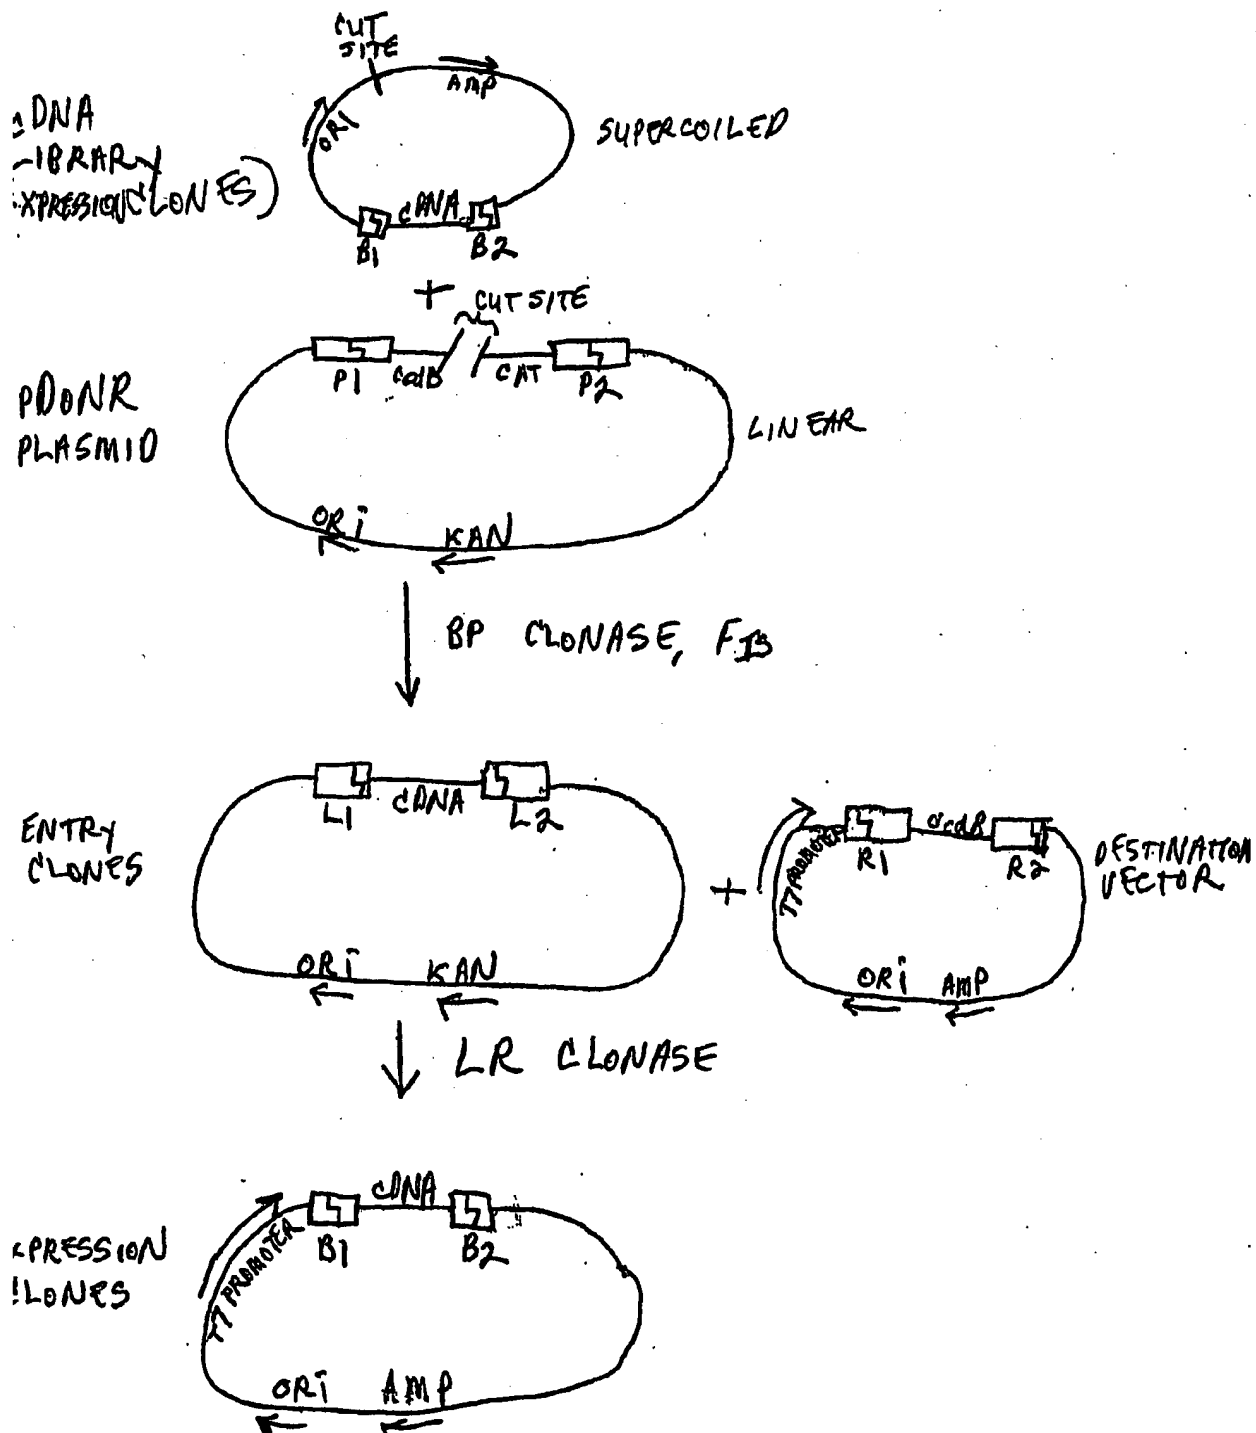 CUT
SITE
AMP
ORI
DNA
LIBRARY
XPRESSION CLONES)
SUPERCOILED
cDNA
B1
B2
+
CUT SITE
P1
ccdB
CAT
P2
pDONR
PLASMID
LINEAR
ORi
KAN
BP CLONASE, FIS
ENTRY
CLONES
L1
cDNA
L2
+
T7 PROMOTER
R1
ccdB
R2
DESTINATION
VECTOR
ORi
KAN
ORi
AMP
LR CLONASE
XPRESSION
LONES
T7 PROMOTER
B1
cDNA
B2
ORi
AMP